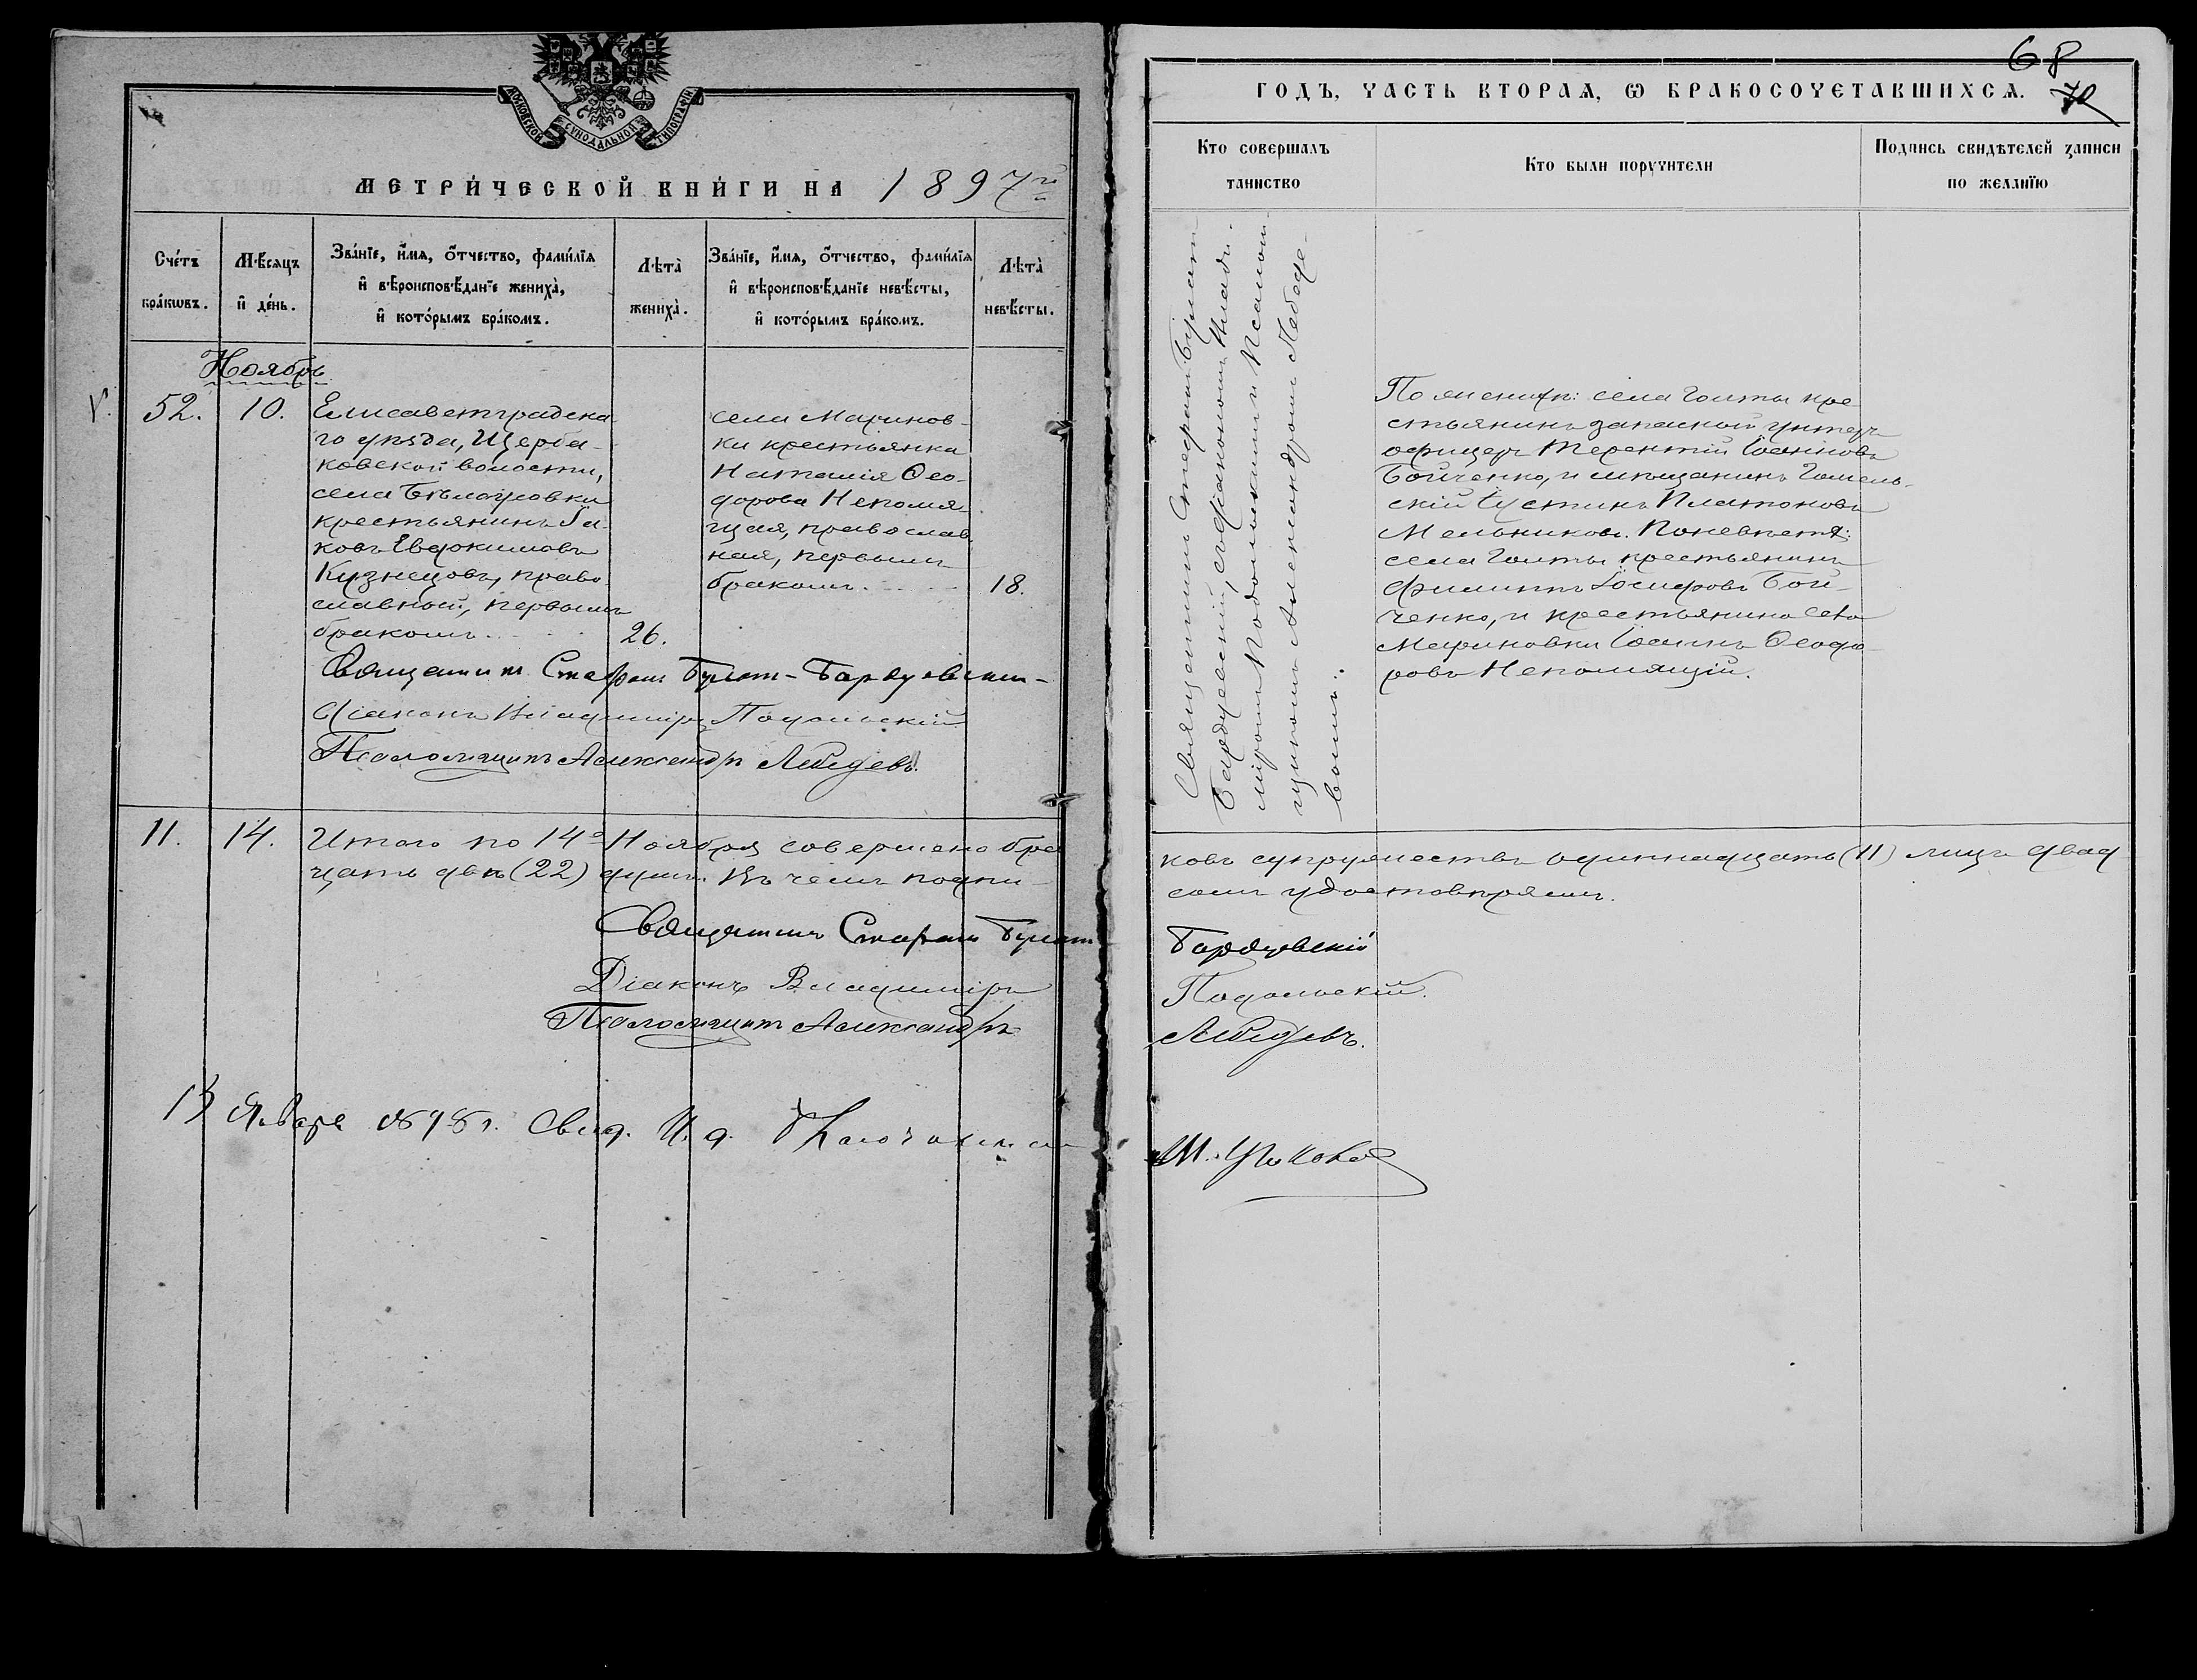 МОСКОВСКОЙ СУНОДАЛЬНОЙ ТИПОГРАФІИ
МЕТРИ́ЧЕСКОЙ КНИ́ГИ НА 1897й
Сче́тъ бра́кωвъ.
Мѣ́сяцъ и҆ де́нь.
Зва́нїе, и҆́мя, ѻ҆́тчество, фами́лїя
и҆ вѣроисповѣ́данїе жениха̀,
и҆ кото́рымъ бра́комъ.
Лѣта̀ жениха̀.
Зва́нїе, и҆́мя, ѻ҆́тчество, фами́лїя
и҆ вѣроисповѣ́данїе невѣ́сты,
и҆ кото́рымъ бра́комъ.
Лѣта̀ невѣ́сты.
Ноябрь
52. 10.
Елисаветградска
го уѣзда, Щерба-
ковской волости,
села Бѣлогровки
крестьянинъ Іа-
ковъ Евдокимовъ
Кузнецовъ, право-
славный, первымъ
бракомъ. 26.
села Маринов-
ки крестьянка
Наталія Ѳео-
дорова Непомя-
щая, православ
ная, первымъ
бракомъ. 18.
Священникъ Стефанъ Булат-Бардуовскій
Діаконъ Владиміръ Подольскій
Псаломщикъ Александръ Лебедевъ.
11. 14. Итого по 14е Ноября совершено бра
цать два (22) душъ. Въ чемъ подпи-
Священникъ Стефанъ Булат
Діаконъ Владиміръ
Псаломщикъ Александръ
13 Января 1898 г. Свид. И. д.
68
70
ГОДЪ, ЧАСТЬ ВТОРАЯ, Ѡ БРАКОСОЧЕТАВШИХСЯ.
Кто совершалъ
таинство
Кто были поручители
Подпись свидѣтелей записи
по желанїю
Священникъ Стефанъ Булат-
Бардуовскій, съ діакономъ Влади-
міромъ Подольскимъ и Псалом-
щикомъ Александромъ Лебеде-
вымъ.
По женихѣ: села Голты кре
стьянинъ запасной унтеръ
офицеръ Терентій Іоанновъ
Бойченко, и мѣщанинъ Гомель-
скій Іустинъ Платоновъ
Мельниковъ. По невѣстѣ:
села Голты крестьянинъ
Филиппъ Іосифовъ Бой-
ченко, и крестьянинъ села
Мариновки Іоаннъ Ѳеодо-
ровъ Непомящій.
ковъ супружествъ одиннадцать (11) лицъ двад
семъ удостовѣряемъ.
Бардуовскій
Подольскій.
Лебедевъ.